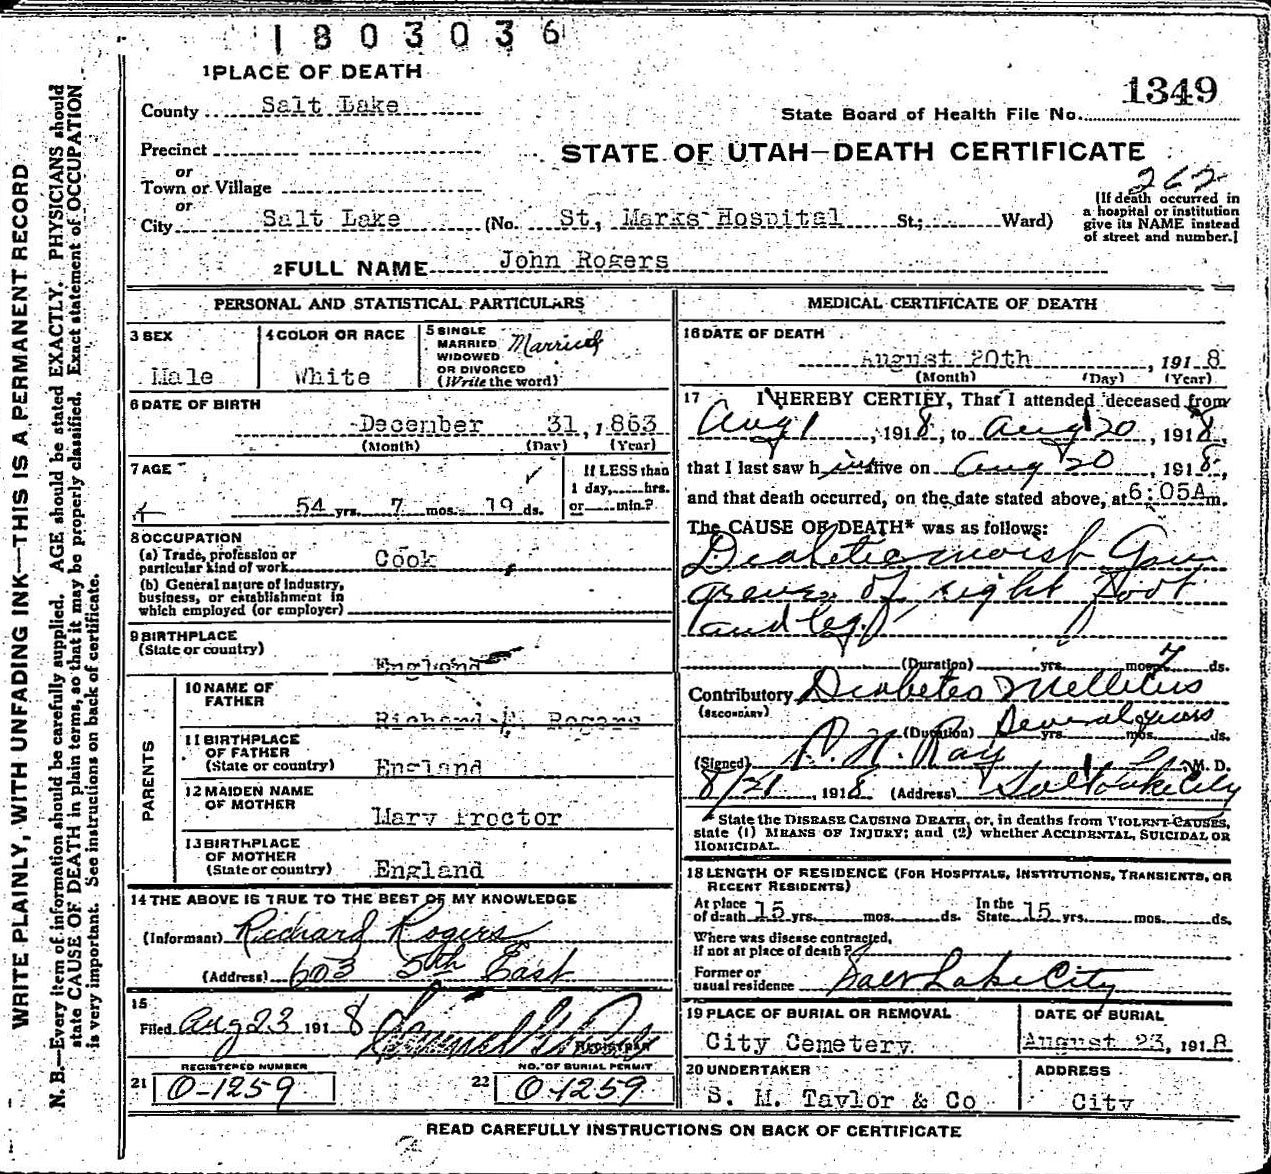 1803036
1 PLACE OF DEATH
1349
County Salt Lake
State Board of Health File No.
Precinct
STATE OF UTAH—DEATH CERTIFICATE
or
Town or Village
262
or
City Salt Lake (No. St, Marks Hospital St; Ward)
[If death occurred in
a hospital or institution
give its NAME instead
of street and number.]
2 FULL NAME John Rogers
PERSONAL AND STATISTICAL PARTICULARS
3 SEX
Male
4 COLOR OR RACE
White
5 SINGLE
MARRIED
WIDOWED
OR DIVORCED
(Write the word)
Married
6 DATE OF BIRTH
December 31, 1863
(Month) (Day) (Year)
7 AGE
54 yrs. 7 mos. 19 ds.
If LESS than
1 day, hrs.
or min.?
8 OCCUPATION
(a) Trade, profession or
particular kind of work Cook
(b) General nature of industry,
business, or establishment in
which employed (or employer)
9 BIRTHPLACE
(State or country)
England
PARENTS
10 NAME OF
FATHER
Richard Rogers
11 BIRTHPLACE
OF FATHER
(State or country) England
12 MAIDEN NAME
OF MOTHER
Mary Proctor
13 BIRTHPLACE
OF MOTHER
(State or country) England
14 THE ABOVE IS TRUE TO THE BEST OF MY KNOWLEDGE
(Informant) Richard Rogers
(Address) 603 5th East
15
Filed Aug 23 1918
REGISTRAR
REGISTERED NUMBER
21 0-1259
NO. OF BURIAL PERMIT
22 0-1259
MEDICAL CERTIFICATE OF DEATH
16 DATE OF DEATH
August 20th, 1918
(Month) (Day) (Year)
17 I HEREBY CERTIFY, That I attended deceased from
Aug 1, 1918, to Aug 20, 1918,
that I last saw him alive on Aug 20, 1918,
and that death occurred, on the date stated above, at 6:05A m.
The CAUSE OF DEATH* was as follows:
Diabetic moist Gan
grene of right Foot
and leg.
(Duration) yrs. mos. 7 ds.
Contributory Diabetes Mellitus
(SECONDARY)
(Duration) Several years yrs. mos. ds.
(Signed) Ray M. D.
8/21, 1918 (Address) Salt Lake City
*State the DISEASE CAUSING DEATH, or, in deaths from VIOLENT CAUSES,
state (1) MEANS OF INJURY; and (2) whether ACCIDENTAL, SUICIDAL OR
HOMICIDAL.
18 LENGTH OF RESIDENCE (FOR HOSPITALS, INSTITUTIONS, TRANSIENTS, OR
RECENT RESIDENTS)
At place
of death 15 yrs. mos. ds.
In the
State 15 yrs. mos. ds.
Where was disease contracted,
if not at place of death?
Former or
usual residence Salt Lake City
19 PLACE OF BURIAL OR REMOVAL
City Cemetery
DATE OF BURIAL
August 23, 1918
20 UNDERTAKER
S. M. Taylor & Co
ADDRESS
City
READ CAREFULLY INSTRUCTIONS ON BACK OF CERTIFICATE
WRITE PLAINLY, WITH UNFADING INK—THIS IS A PERMANENT RECORD
N. B.—Every item of information should be carefully supplied. AGE should be stated EXACTLY. PHYSICIANS should
state CAUSE OF DEATH in plain terms, so that it may be properly classified. Exact statement of OCCUPATION
is very important. See instructions on back of certificate.